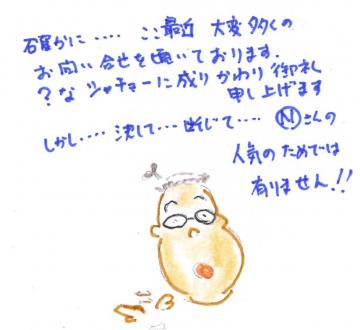 確かに‥‥ ここ最近 大変多くの
お問い合せを頂いております。
?な シャチョーに成りかわり 御礼
申し上げます
しかし‥‥ 決して‥‥ 断じて‥‥ Ⓝさんの
人気のためでは
有りません!!